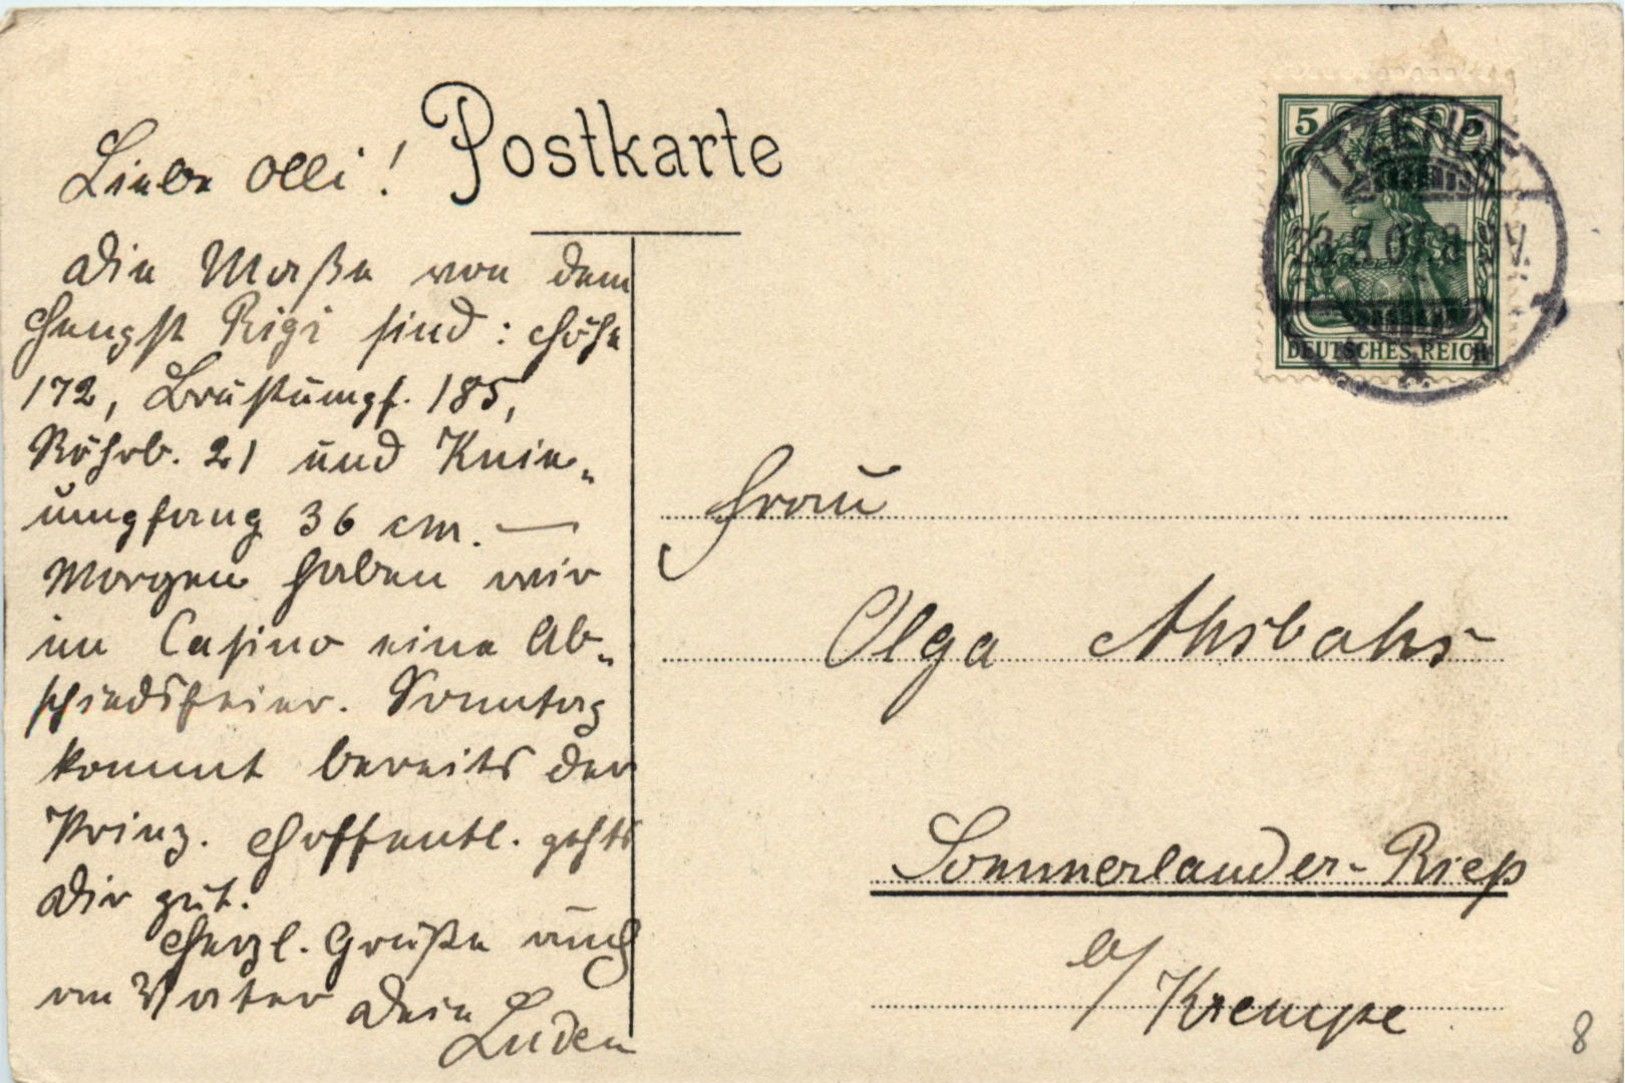 Postkarte
Liebe Olli!
Die Maße von dem
Hengst Rigi sind: Höhe
172, Brustumpf. 185,
Röhrb. 21 und Knie-
umpfang 36 cm. —
Morgen haben wir
im Casino eine Ab-
schiedsfeier. Sonntag
kommt bereits der
Prinz. Hoffentl. gehts
Dir gut.
Herzl. Grüße auch
an Vater Dein
Luden
5 5
ITZEHOE
8-9V.
DEUTSCHES REICH
Frau
Olga Ahsbahs
Sommerlander-Riep
b/ Krempe
8